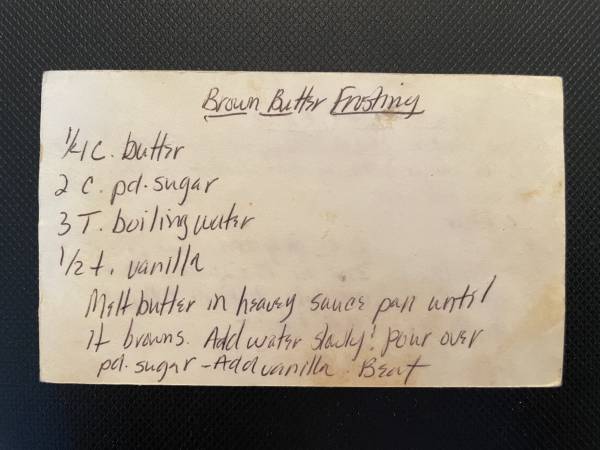 Brown Butter Frosting
1/4 C. butter
2 C. pd. sugar
3 T. boiling water
1/2 t. vanilla
Melt butter in heavey sauce pan until
it browns. Add water slowly! Pour over
pd. sugar - Add vanilla. Beat